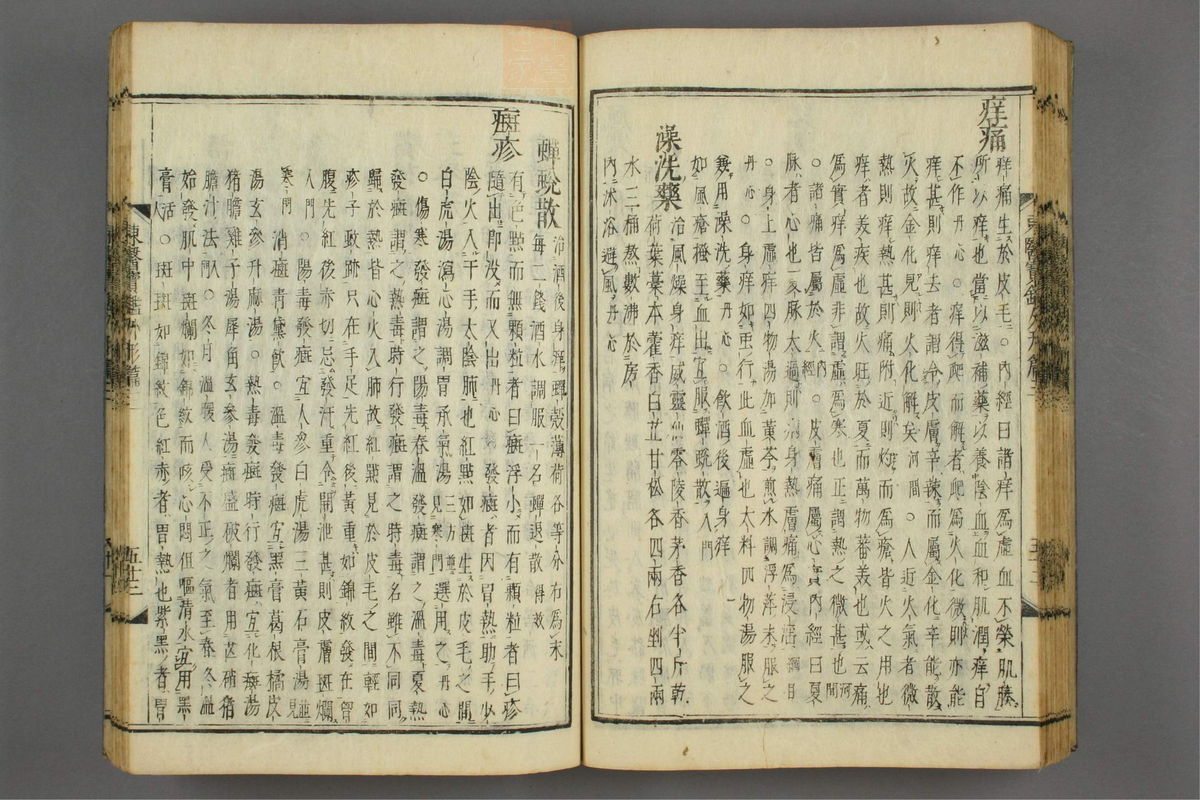 痒痛
痒痛生於皮毛○內經曰諸痒爲虛血不榮肌腠
所以痒也當以滋補藥以養陰血血和肌潤痒自
不作丹心○痒得爬而解者爬爲火化微則亦能
痒甚則痒去者謂令皮膚辛辣而屬金化辛能散
火故金化見則火化解矣河間○人近火氣者微
熱則痒熱甚則痛附近則灼而爲瘡皆火之用也
痒者美疾也故火旺於夏而萬物蕃美也或云痛
爲實痒爲虛非謂虛爲寒也正謂熱之微甚也河間
○諸痛皆屬於火內經○皮膚痛屬心實內經曰夏
脉者心也夏脉太過則病身熱膚痛爲浸淫綱目
○身上虛痒四物湯加黃芩煎水調浮萍末服之
丹心○身痒如虫行此血虛也大料四物湯服之
兼用澡洗藥丹心○飮酒後遍身痒
如風瘡搔至血出宜服蟬蛻散入門
澡洗藥
治風燥身痒威靈仙零陵香茅香各半斤乾
荷葉藁本藿香白芷甘松各四兩右剉四兩
水二桶熬數沸於房
內沐浴避風丹心
蟬蛻散
治酒後身痒蟬殼薄荷各等分右爲末
每二錢酒水調服一名蟬退散得效
癍疹
有色點而無顆粒者曰癍浮小而有顆粒者曰疹
隨出即沒而又出丹心○發癍者因冒熱助手少
陰火入于手太陰肺也紅點如斑生於皮毛之間
白虎湯瀉心湯調胃承氣湯三方並見寒門選用之丹心
○傷寒發癍謂之陽毒春溫發癍謂之溫毒夏熱
發癍謂之熱毒時行發癍謂之時毒名雖不同同
歸於熱皆心火入肺故紅點見於皮毛之間輕如
疹子蚊跡只在手足先紅後黃重如錦紋發在胷
腹先紅後赤切忌發汗重令開泄甚則皮膚斑爛
入門○陽毒發癍宜人參白虎湯三黃石膏湯並見
寒門消癍靑黛飮○溫毒發癍宜黑膏葛根橘皮
湯玄參升麻湯○熱毒發癍時行發癍宜化癍湯
猪膽雞子湯犀角玄參湯癍盛破爛者用芒硝猪
膽汁法入門○冬月溫暖人受不正之氣至春冬溫
始發肌中斑爛如錦紋而咳心悶但嘔淸水宜用黑
膏活人○斑斑如錦紋色紅赤者胃熱也紫黑者胃
東醫寶鑑外形篇三
五十三